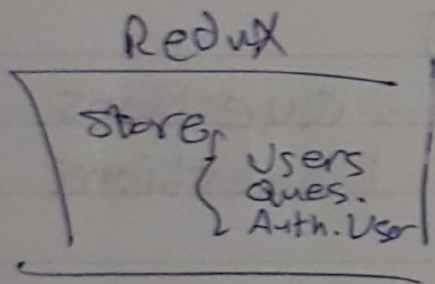 Redux
Store
Users
Ques.
Auth. User